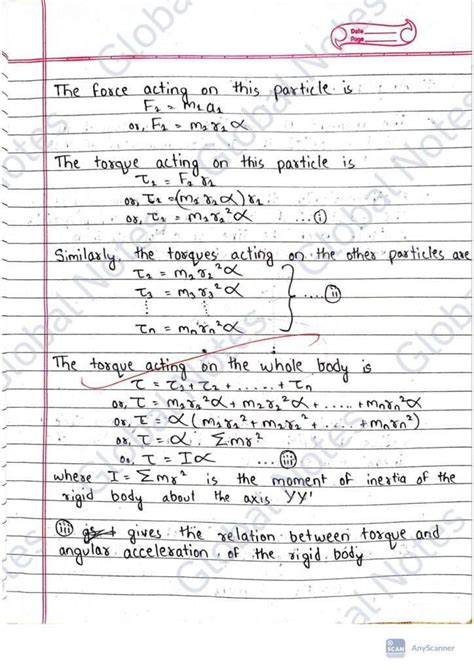 Date
Page
The force acting on this particle is
F₁ = m₁a₁
or, F₁ = m₁r₁α
The torque acting on this particle is
τ₁ = F₁ r₁
or, τ₁ = (m₁r₁α)r₁
or, τ₁ = m₁r₁²α ....(i)
Similarly, the torques acting on the other particles are
τ₂ = m₂r₂²α
τ₃ = m₃r₃²α
⋮ ⋮ } ....(ii)
τn = mnrn²α
The torque acting on the whole body is
τ = τ₁ + τ₂ + ..... + τn
or, τ = m₁r₁²α + m₂r₂²α + ..... + mnrn²α
or, τ = α (m₁r₁² + m₂r₂² + ..... + mnrn²)
or, τ = α . Σmr²
or, τ = Iα ....(iii)
where I = Σmr² is the moment of inertia of the
rigid body about the axis YY'
(iii) gives the relation between torque and
angular acceleration of the rigid body
Global Notes
SCAN AnyScanner